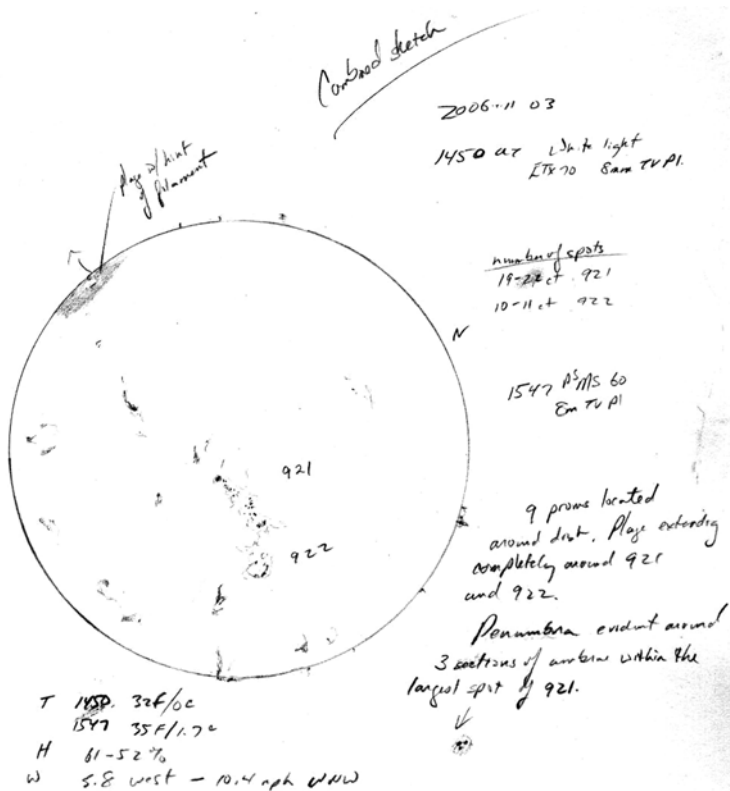 Combined sketch
2006-11 03
1450 UT White light
ETX 70 8mm TV Pl.
plage w/ hint
of filament
number of spots
19-22 ct 921
10-11 ct 922
N
1547 MS 60
8m TV Pl
921
922
9 proms located
around disk. Plage extending
completely around 921
and 922.
Penumbra evident around
3 sections of umbrae within the
largest spot of 921.
T 1450. 32f/0c
1547 35F/1.7c
H 61-52%
W 5.8 west - 10.4 mph WNW